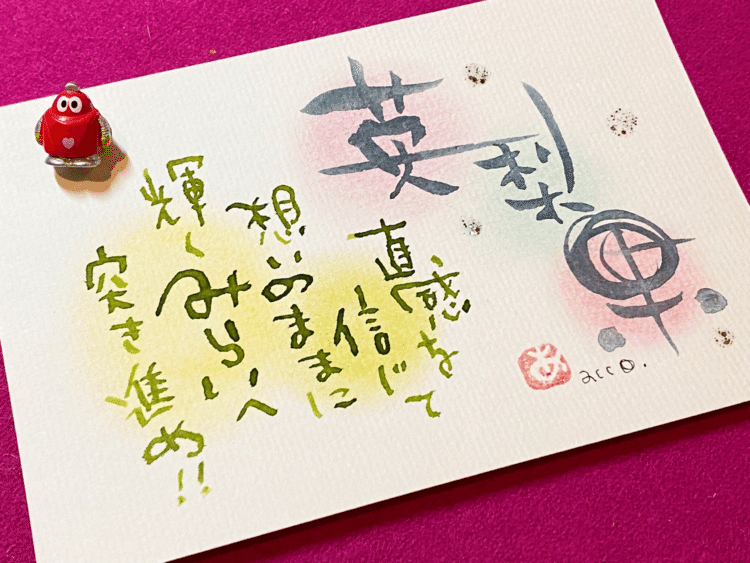 英
直感を
信じて
想いのままに
輝く
みらいへ
突き進め!!
あ
acco.